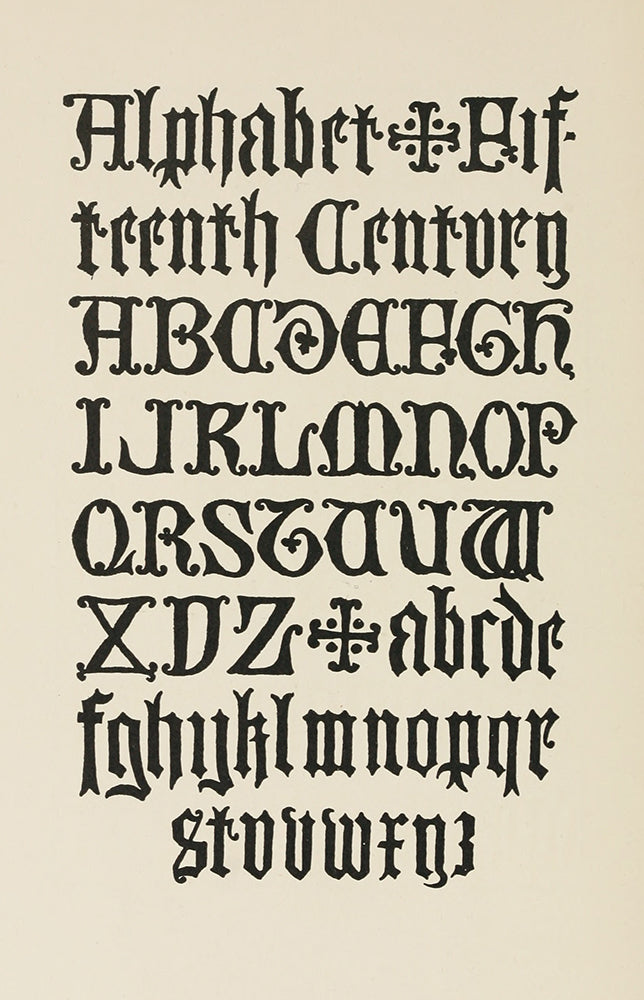 Alphabet ✠ Fif-
teenth Century
ABCDEFGH
IJKLMNOP
QRSTUUW
XYZ ✠ abcde
fghijklmnopqr
stuvwxyz